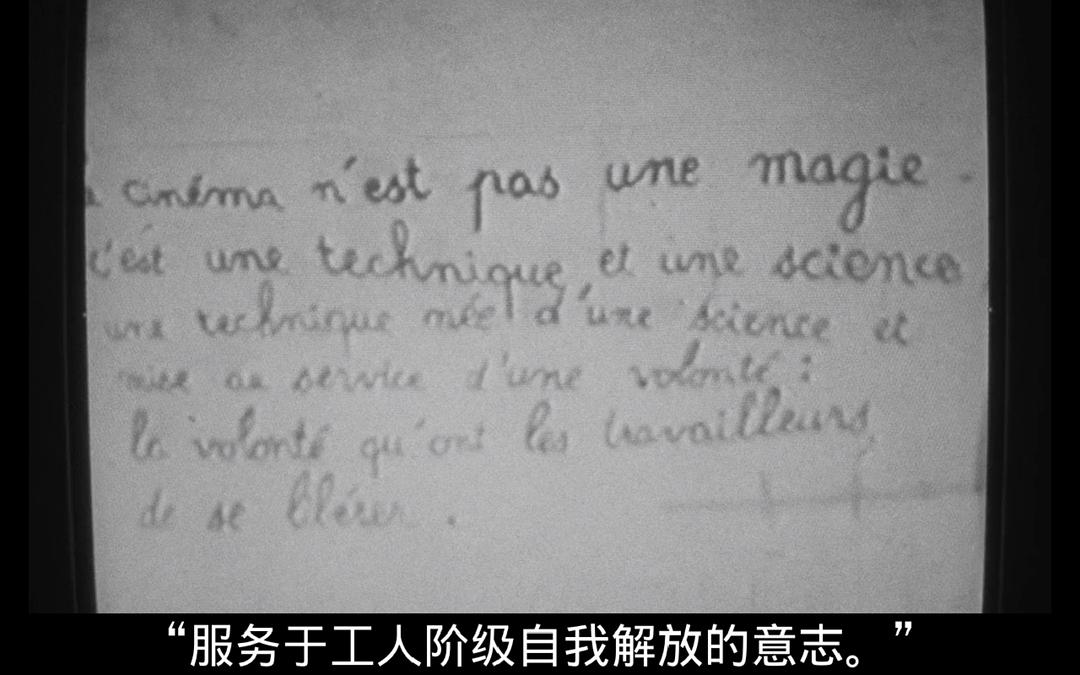 cinéma n'est pas une magie.
c'est une technique et une science
une technique née d'une science et
mise au service d'une volonté :
la volonté qu'ont les travailleurs
de se
“服务于工人阶级自我解放的意志。”